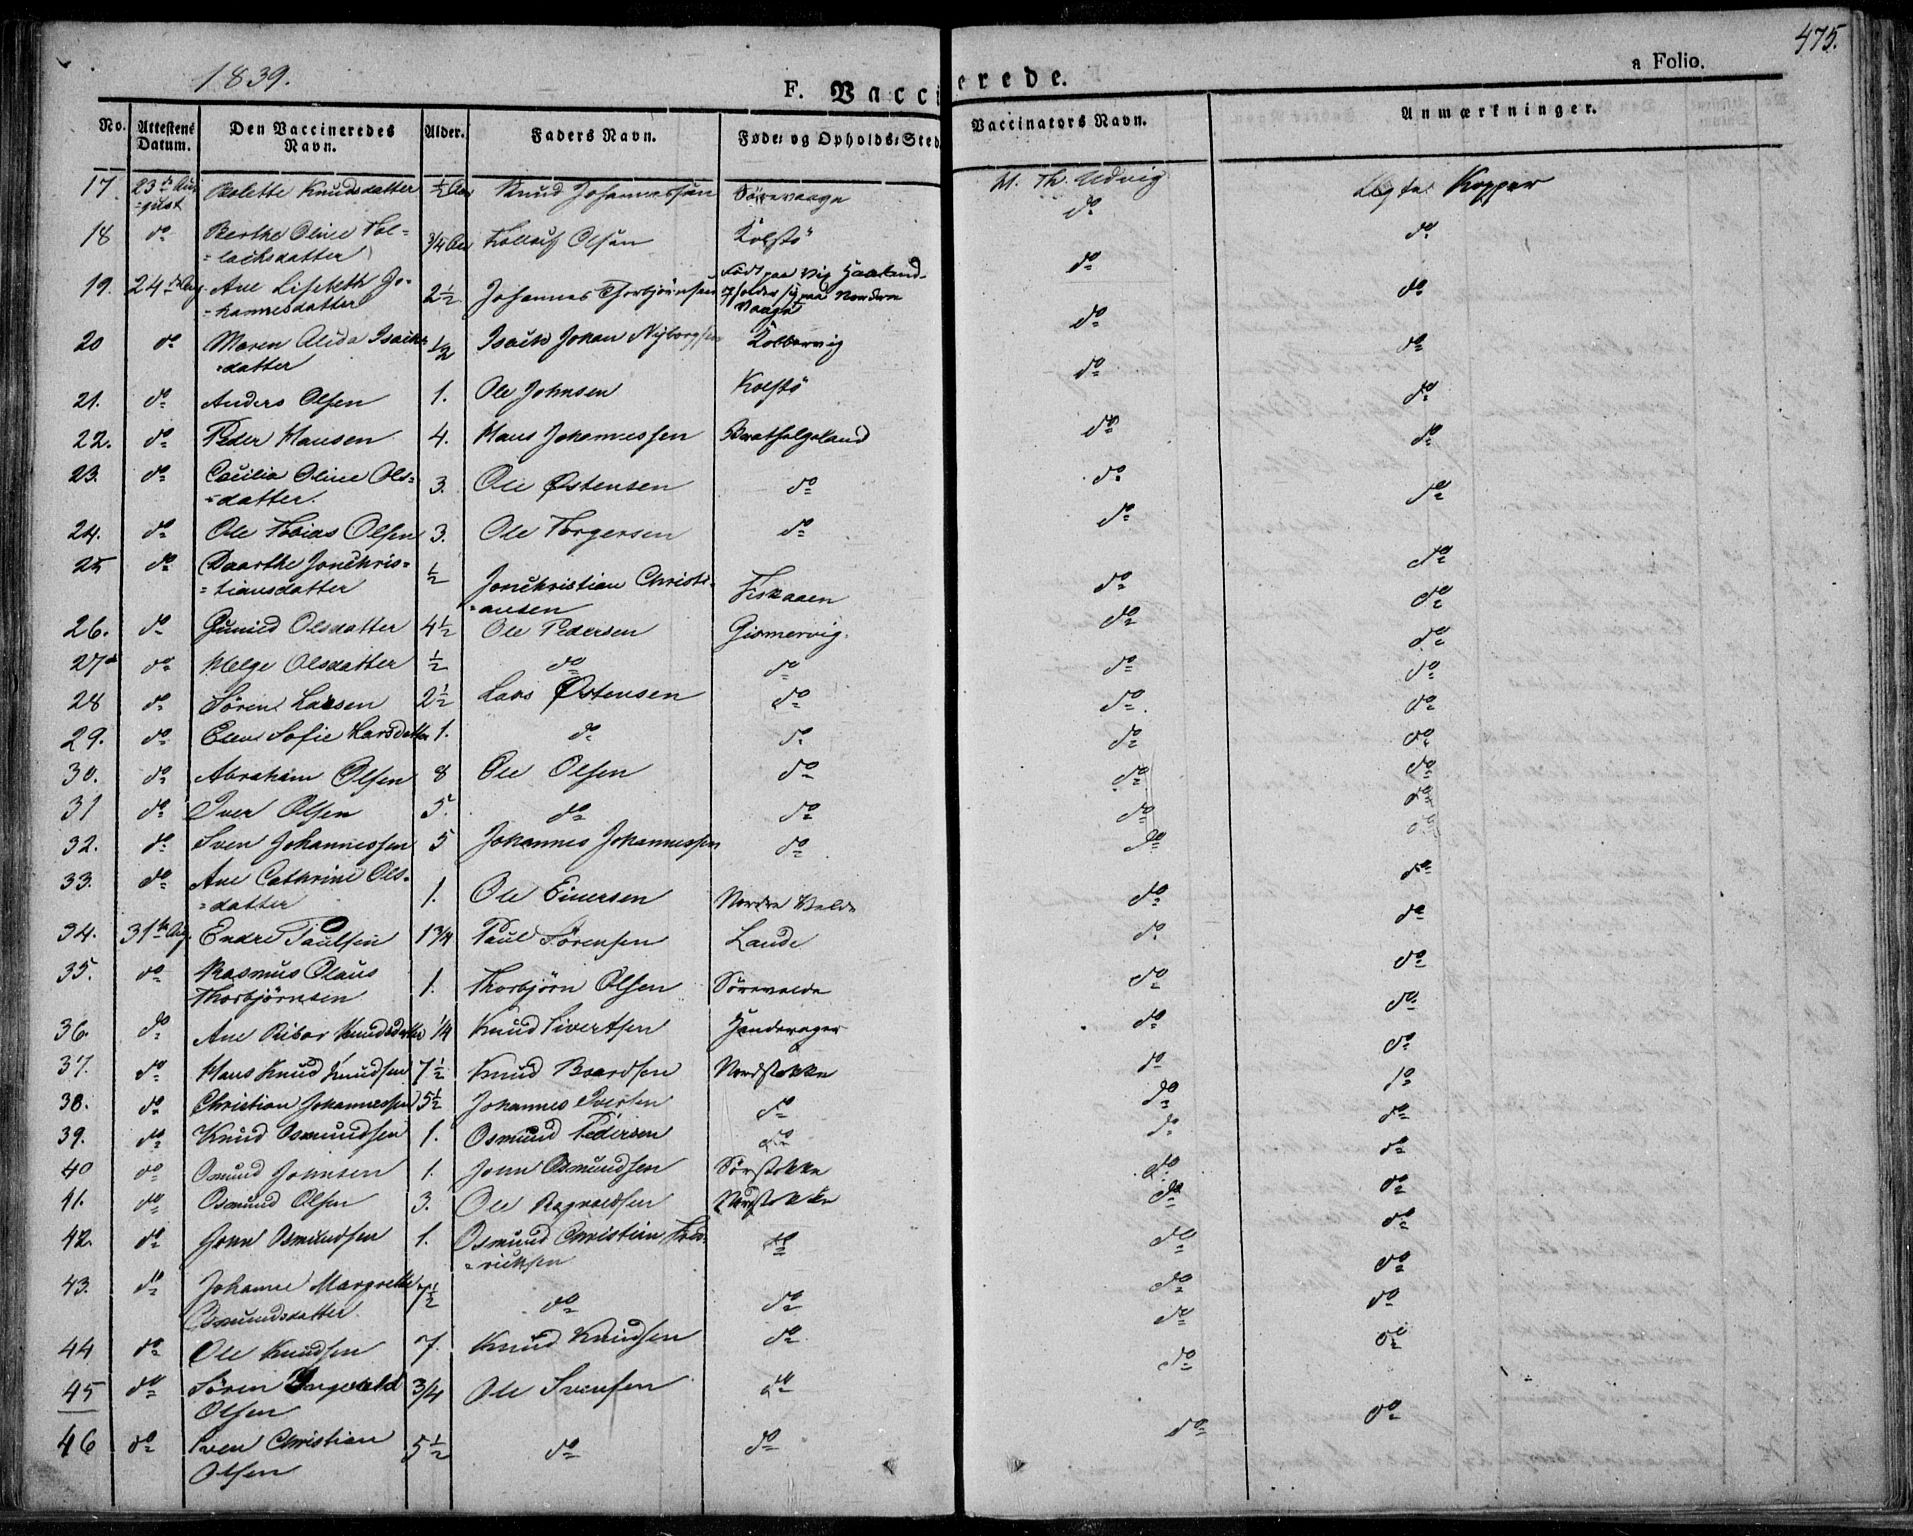 475.
1839.
F. Vaccinerede.
a Folio.
No. Attestens Datum. Den Vaccineredes Navn. Alder. Faders Navn. Føde- og Opholds-Sted Vaccinators Navn. Anmærkninger.
17. 23de Au=gust Bolette Knudsdatter ½ Aar Knud Johannessen Sørevaage M. Th. Udvig Ægte Kopper
18 do Berthe Oline Tol=lachsdatter ¾ Aar Tollach Olsen Kolstö do do
19. 24de Aug. Ane Lisebeth Jo=hannesdatter 2½ Johannes Thorbjörnsen Født paa Vig Haaland opholder sig paa Nordre Vaage do do
20 do Maren Alida Isachs=datter ½ Isach Johan Nyborgsen Kolbervig do do
21. do Anders Olsen 1. Ole Johnsen Kolstö do do
22. do Peder Hansen 4. Hans Johannessen Bratthelgeland do do
23. do Cecilia Oline Ols=datter. 3. Ole Østensen do do do
24. do Ole Tobias Olsen 3. Ole Torgersen do do do
25 do Daarthe Jonchris=tiansdatter ½ Jonchristian Christi=ansen Fiskaaen do do
26. do Gunild Olsdatter 4½ Ole Pedersen Gismervig. do do
27. do Helge Olsdatter ½ do do do do
28 do Søren Larsen 2½ Lars Østensen do do do
29. do Elen Sofie Larsdatter 1. do do do do
30. do Abraham Olsen 8 Ole Olsen do do do
31 do Iver Olsen 5. do do do do
32. do Sven Johannessen 5 Johannes Johannessen do do do
33. do Ane Cathrine Ols=datter 1. Ole Einersen Nordre Valde do do
34. 31te Aug. Endre Paulsen 1¾ Paul Sørensen Lande do do
35. do Rasmus Olaus Thorbjörnsen 1. Thorbjörn Olsen Sörevalde do do
36. do Ane Knudsdatter ¼ Knud Sivertsen do do
37. do Hans Knud Knudsen 7½ Knud Baardsen Nordstokke do do
38. do Christian Johannessen 5½ Johannes Iversen do do do
39. do Knud Osmundsen 1. Osmund Pedersen do do do
40 do Osmund Johnsen 1. John Osmundsen Sörstokke do do
41. do Osmund Olsen 3. Ole Ragnvaldsen Nordstokke do do
42. do John Osmundsen 1. Osmund Christian Fred=richsen do do do
43. do Johanne Margrethe Osmundsdatter. 7½ do do do do
44 do Ole Knudsen 7. Knud Knudsen do do do
45 do Søren Ingvald Olsen ¾ Ole Svensen do do do
46 do Sven Christian Olsen 5½ do do do do